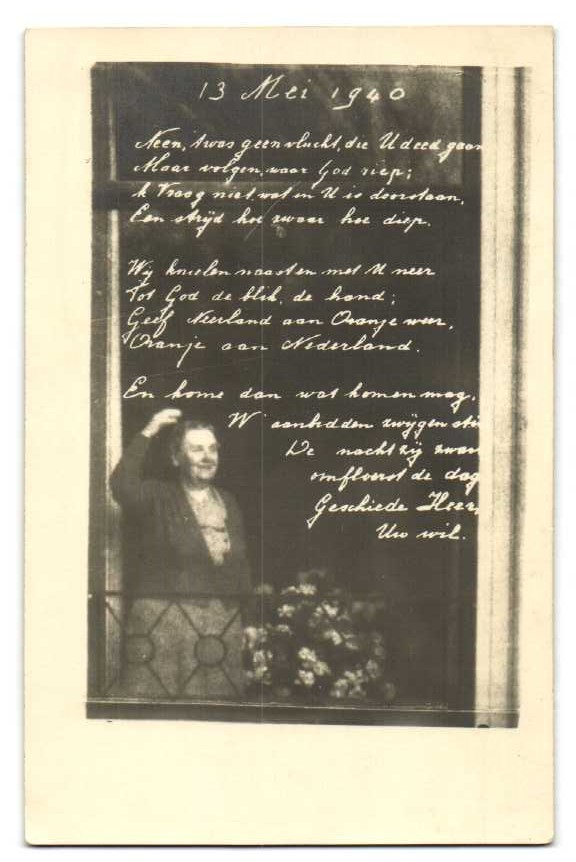 13 Mei 1940
Neen, 't was geen vlucht, die U deed gaan
Maar volgen, waar God riep;
'k Vraag niet, wat in U is doorstaan,
Een strijd hoe zwaar hoe diep.
Wij knielen naast en met U neer
Tot God de blik, de hand;
Geef Neerland aan Oranje weer,
Oranje aan Nederland.
En kome dan wat komen mag,
W' aanbidden zwijgen stil
De nacht zij zwar
omfloerst de dag
Geschiede Heer,
Uw wil.